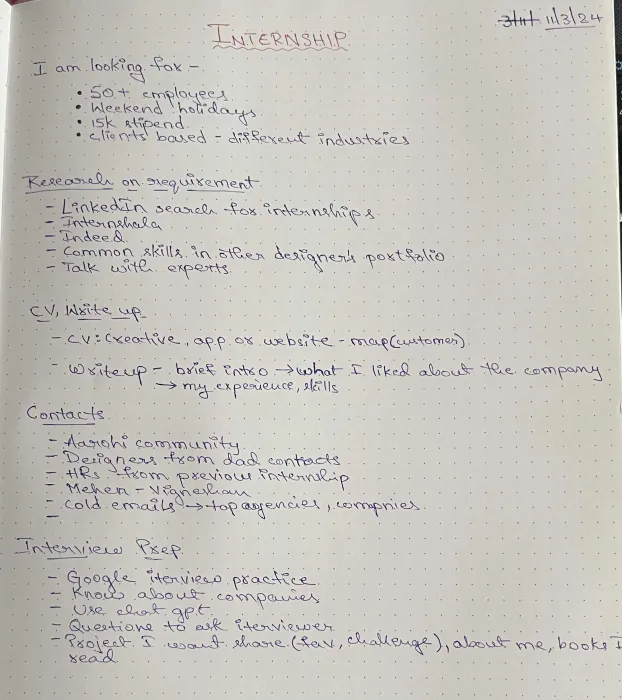 11/3/24
INTERNSHIP
I am looking for -
• 50+ employees
• Weekend holidays
• 15k stipend
• clients based - different industries
Research on requirement
- LinkedIn search for internships
- Internshala
- Indeed
- Common skills in other designer's portfolio
- Talk with experts
CV, Write up
- CV: Creative, app or website - map(customer)
- Writeup - brief intro → what I liked about the company
→ my experience, skills
Contacts
- Aarohi community
- Designers from dad contacts
- HRs from previous internship
- Mehen - Vigneshan
- Cold emails → top agencies, compnies
-
Interview Prep
- Google iterview practice
- Know about companies
- Use chat gpt
- Questions to ask iterviewer
- Project I want share (fav, challenge), about me, books I
read